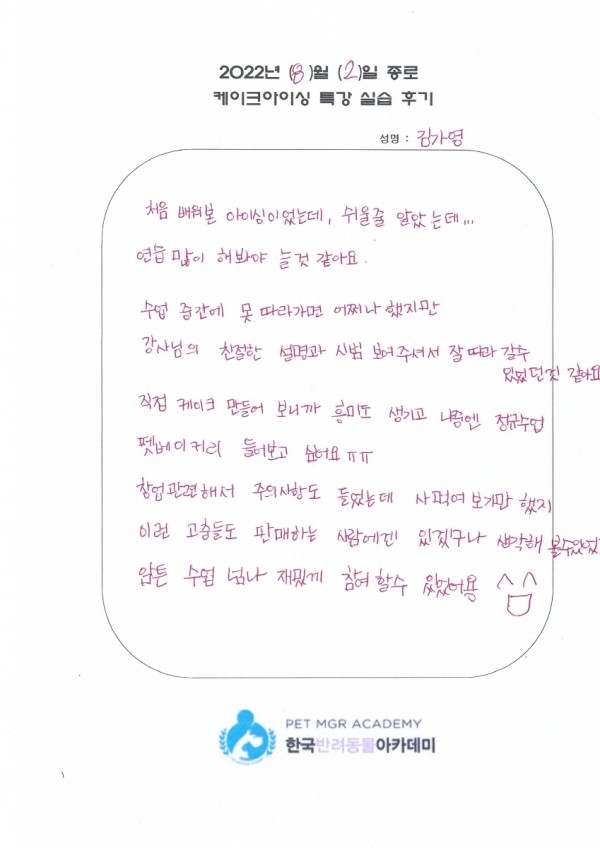 2022년 (8)월 (2)일 종로
케이크아이싱 특강 실습 후기
성명 : 김가영
처음 배워본 아이싱이었는데, 쉬울줄 알았는데...
연습 많이 해봐야 늘것 같아요.
수업 중간에 못 따라가면 어쩌나 했지만
강사님의 친절한 설명과 시범 보여주셔서 잘 따라 갈수
있었던것 같아요
직접 케이크 만들어 보니까 흥미도 생기고 나중엔 정규수업
펫베이커리 들어보고 싶어요 ㅠㅠ
창업관련해서 주의사항도 들었는데 사먹여 보기만 했지
이런 고충들도 판매하는 사람에겐 있겠구나 생각해 볼수있었
암튼 수업 넘나 재밌게 참여 할수 있었어용 ^^
PET MGR ACADEMY
한국반려동물아카데미